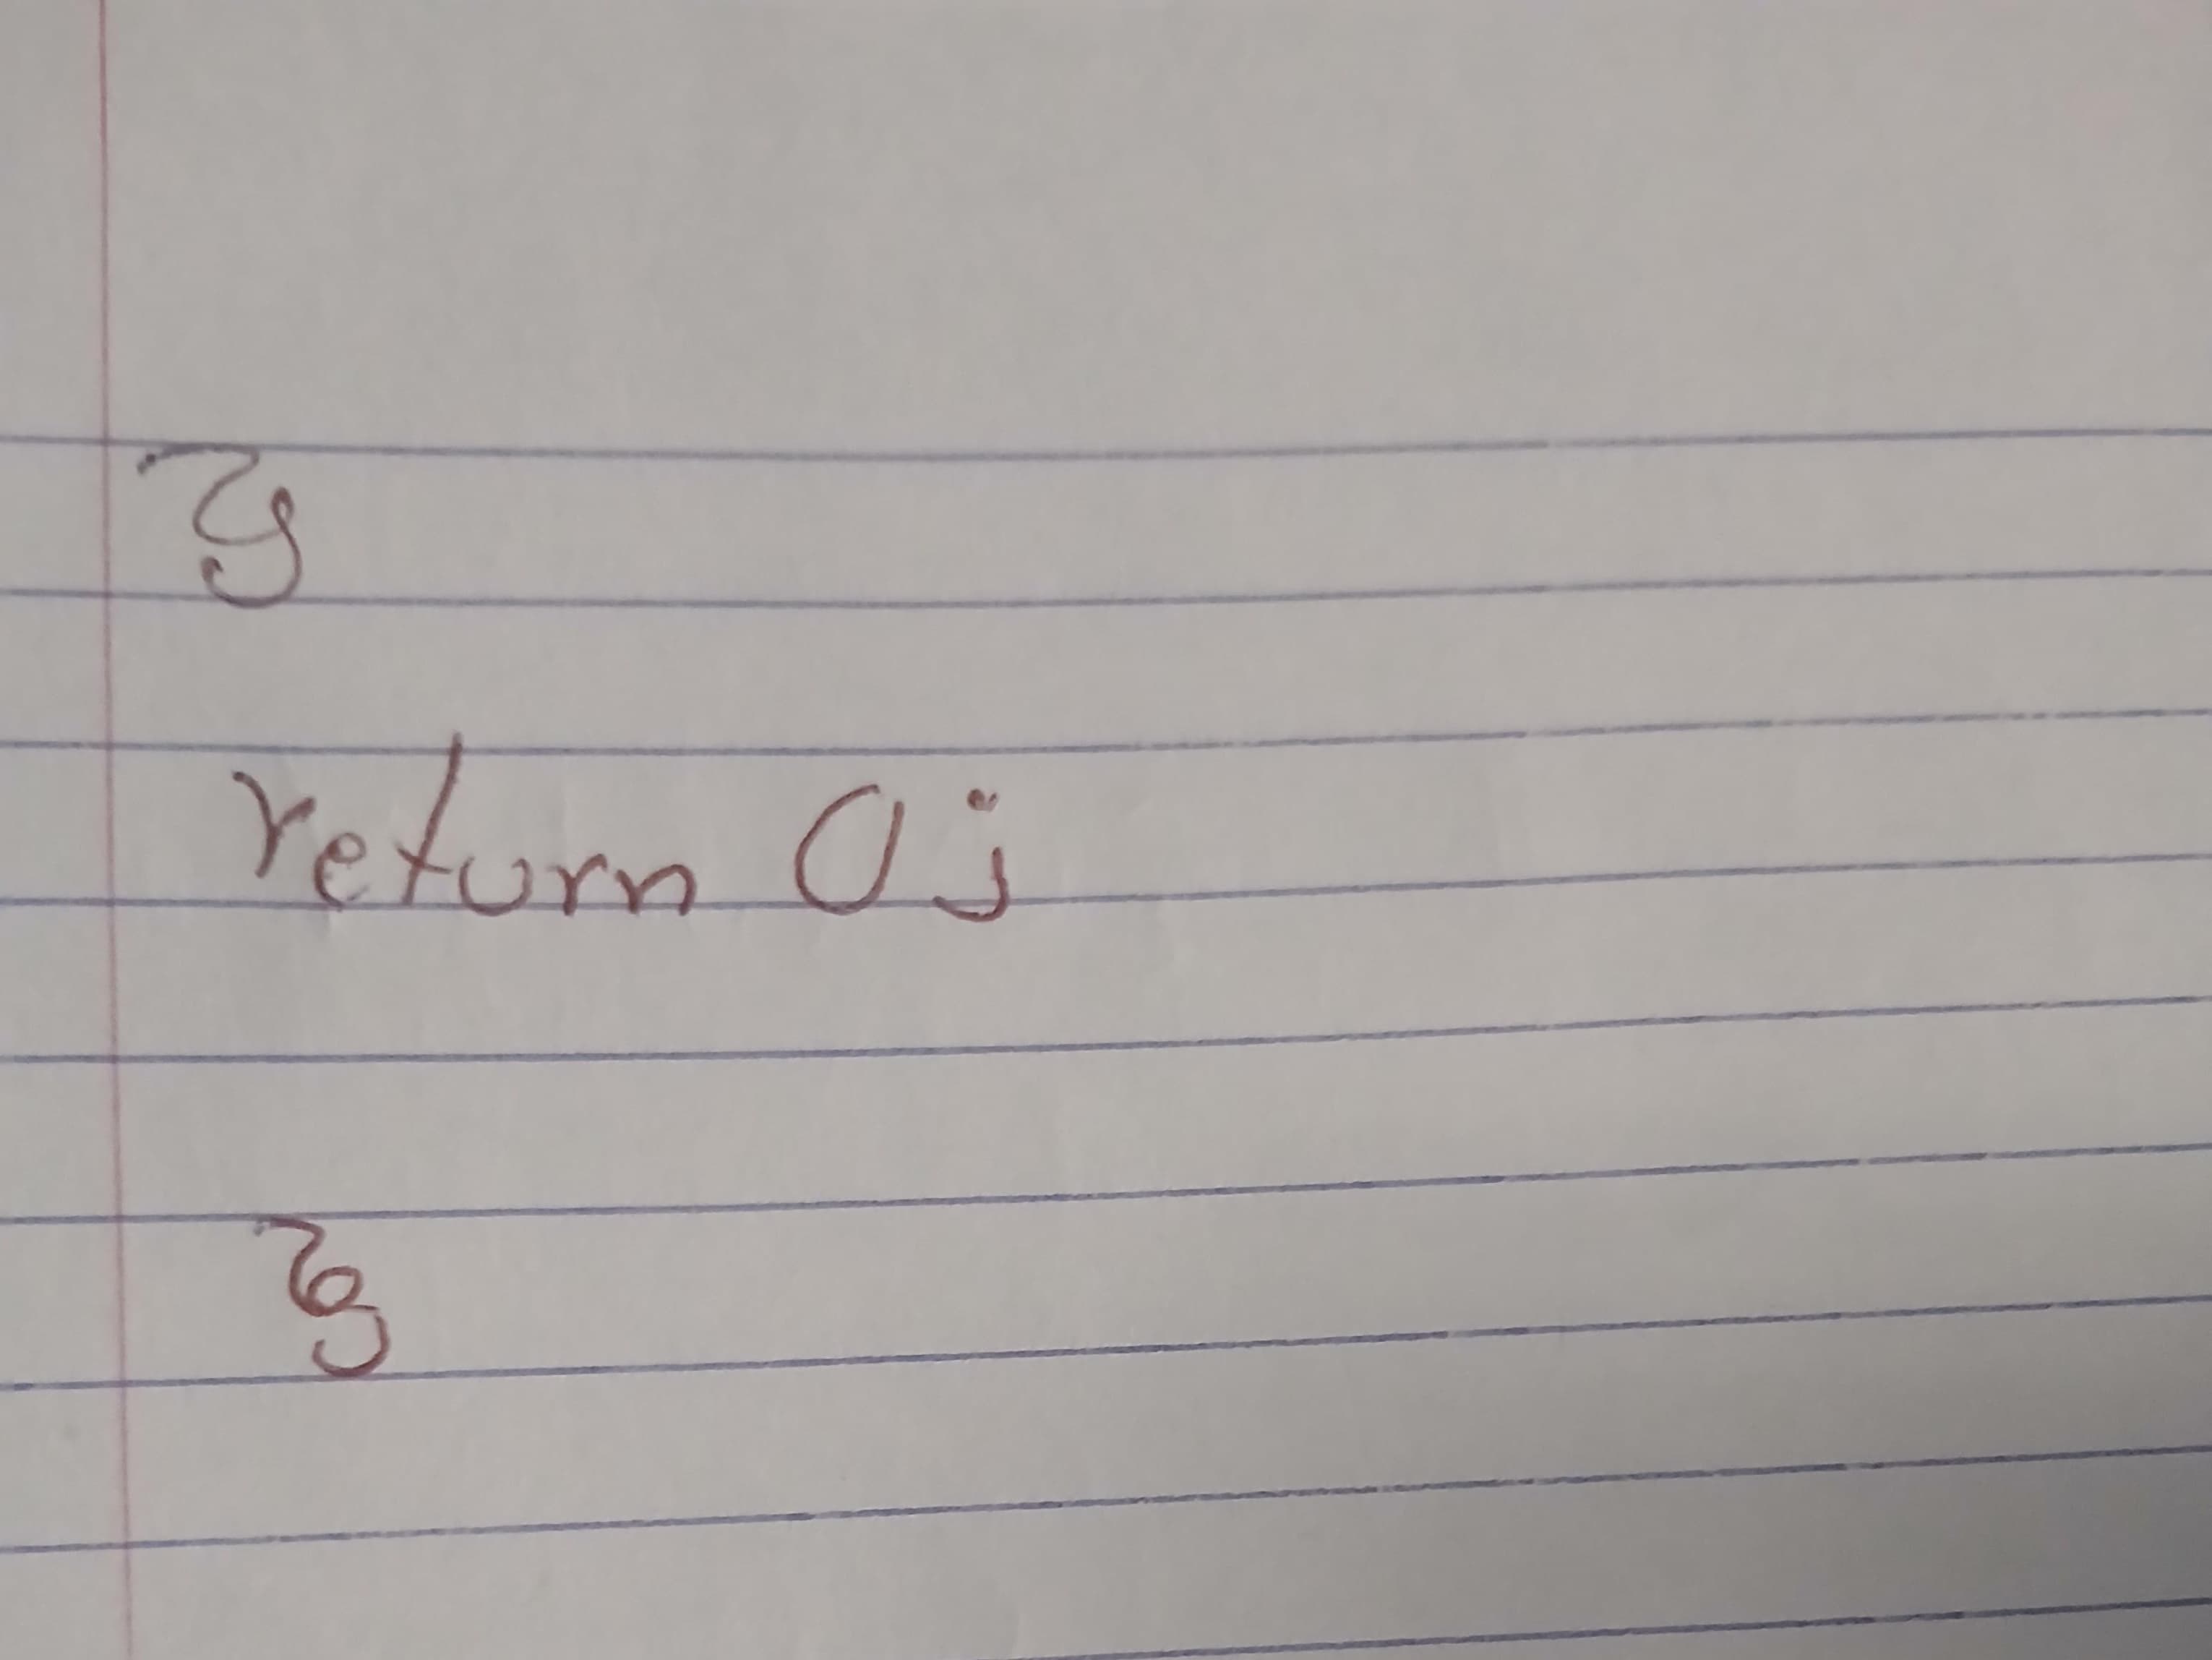 }
return 0;
}